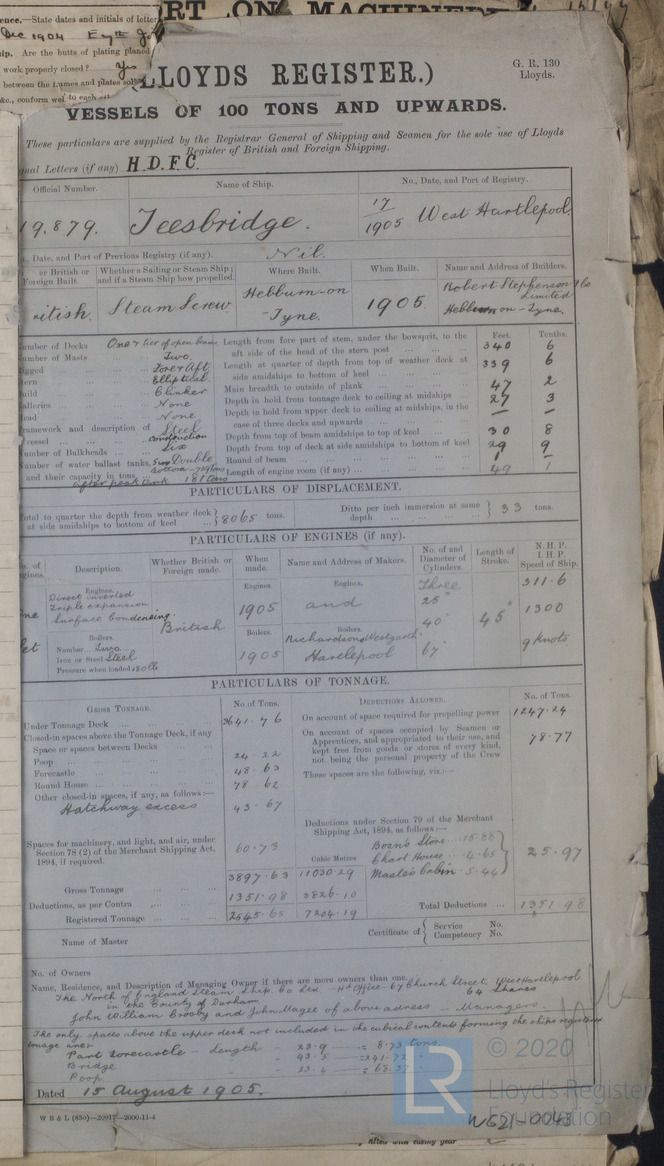 RT ON MACHINERY
ence.—State dates and initials of letter
Dec 1904
ip. Are the butts of plating planed
work properly closed? Yes
between the frames and plates
&c., conform
to each
(LLOYDS REGISTER.)
G. R. 130
Lloyds.
VESSELS OF 100 TONS AND UPWARDS.
These particulars are supplied by the Registrar General of Shipping and Seamen for the sole use of Lloyds
Register of British and Foreign Shipping.
nal Letters (if any) H.D.F.C.
Official Number.
Name of Ship.
No., Date, and Port of Registry.
19.879.
Teesbridge.
17/1905 West Hartlepool.
, Date, and Port of Previous Registry (if any). Nil.
er British or Foreign Built.
Whether a Sailing or Steam Ship; and if a Steam Ship how propelled.
Where Built.
When Built.
Name and Address of Builders.
ritish.
Steam Screw
Hebburn-on-Tyne.
1905
Robert Stephenson & Co Limited
Hebburn on-Tyne.
umber of Decks One & tier of open beams
umber of Masts Two.
igged Fore & Aft
tern Elliptical
uild Clinker
alleries None
ead None
ramework and description of vessel Steel construction
umber of Bulkheads Six
umber of water ballast tanks, Double bottom
and their capacity in tons
after peak tank 181 tons
Length from fore part of stem, under the bowsprit, to the aft side of the head of the stern post
Feet. Tenths.
340 6
Length at quarter of depth from top of weather deck at side amidships to bottom of keel 339 6
Main breadth to outside of plank 47 2
Depth in hold from tonnage deck to ceiling at midships 27 3
Depth in hold from upper deck to ceiling at midships, in the case of three decks and upwards — —
Depth from top of beam amidships to top of keel 30 8
Depth from top of deck at side amidships to bottom of keel 29 9
Round of beam 1 —
Length of engine room (if any) 49 1
PARTICULARS OF DISPLACEMENT.
Total to quarter the depth from weather deck at side amidships to bottom of keel } 8065 tons.
Ditto per inch immersion at same depth } 33 tons.
PARTICULARS OF ENGINES (if any).
Description.
Whether British or Foreign made.
When made.
Name and Address of Makers.
No. of and Diameter of Cylinders.
Length of Stroke.
N.H.P. I.H.P. Speed of Ship.
Engines.
Direct inverted
Triple expansion
Surface Condensing.
British
Engines.
1905
Engines.
and
Three
25"
40"
67"
45"
311.6
1300
9 Knots
Boilers.
Number Two
Iron or Steel Steel
Pressure when loaded 180 lb
Boilers.
1905
Boilers.
Richardsons Westgarth
Hartlepool
PARTICULARS OF TONNAGE.
GROSS TONNAGE.
No. of Tons.
DEDUCTIONS ALLOWED.
No. of Tons.
Under Tonnage Deck 3641.76
Closed-in spaces above the Tonnage Deck, if any
Space or spaces between Decks
Poop 24.22
Forecastle 48.63
Round House 78.62
Other closed-in spaces, if any, as follows:—
Hatchway excess 43.67
Spaces for machinery, and light, and air, under Section 78 (2) of the Merchant Shipping Act, 1894, if required. 60.73
Cubic Metres
Gross Tonnage 3897.63 11030.29
Deductions, as per Contra 1351.98 3826.10
Registered Tonnage 2545.65 7204.19
On account of space required for propelling power 1247.24
On account of spaces occupied by Seamen or Apprentices, and appropriated to their use, and kept free from goods or stores of every kind, not being the personal property of the Crew 78.77
These spaces are the following, viz.:—
Deductions under Section 79 of the Merchant Shipping Act, 1894, as follows:—
Bosn's Store 15.88
Chart House 4.65
Master's Cabin 5.44
25.97
Total Deductions 1351.98
Name of Master
Certificate of { Service No. Competency No.
No. of Owners
Name, Residence, and Description of Managing Owner if there are more owners than one.
The North of England Steam Ship Co Ltd Hd Office 67 Church Street, West Hartlepool
in the County of Durham. 64 Shares
John William Crosby and John Magee of above adress — Managers.
The only spaces above the upper deck not included in the cubical contents forming the ships registered
tonnage are:
Part Forecastle — Length — 23.9 = 8.73 tons.
Bridge 93.5 = 241.72
Poop 23.4
Dated 15 August 1905.
W B & L (850)—20917—2000-11-4
LR
© 2020
Lloyd's Register
Foundation
W621-0043